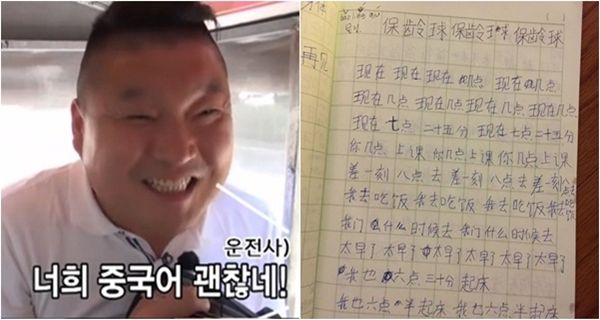 운전사)
너희 중국어 괜찮네!
保龄球 保龄球 保龄球
再见
现在 现在 现在 几点 现在 几点
现在几点 现在几点 现在几点 现在几点
现在 七点 二十五分 现在七点二十五分
你几点 上课 你几点 上课 你几点 上课
差一刻 八点 去 差一刻 八点 去 差一刻
我去吃饭 我去吃饭 我去吃饭 我去吃饭
我们 什么 时候去 我们 什么时候去
太早了 太早了 太早了 太早了 太早了 太早了
我也 六点 三十分 起床
我也六点 半起床 我也六点半起床